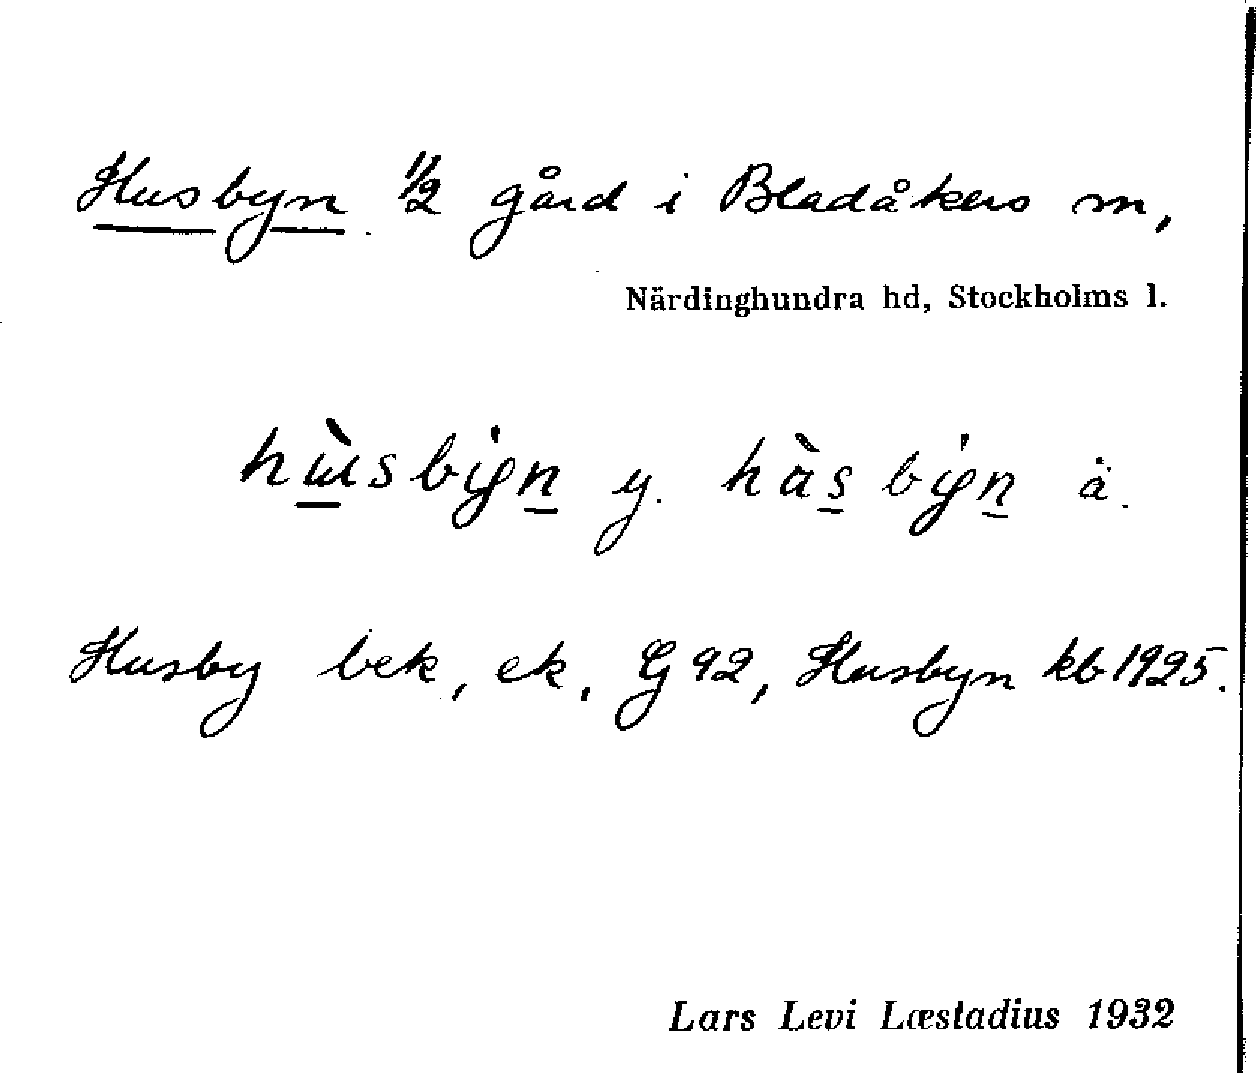 Husbyn 1/2 gård i Bladåkers sn,
Närdinghundra hd, Stockholms l.
hùsby̍n y. hàsby̍n ä.
Husby bek, ek, G 92, Husbyn kb 1925.
Lars Levi Læstadius 1932